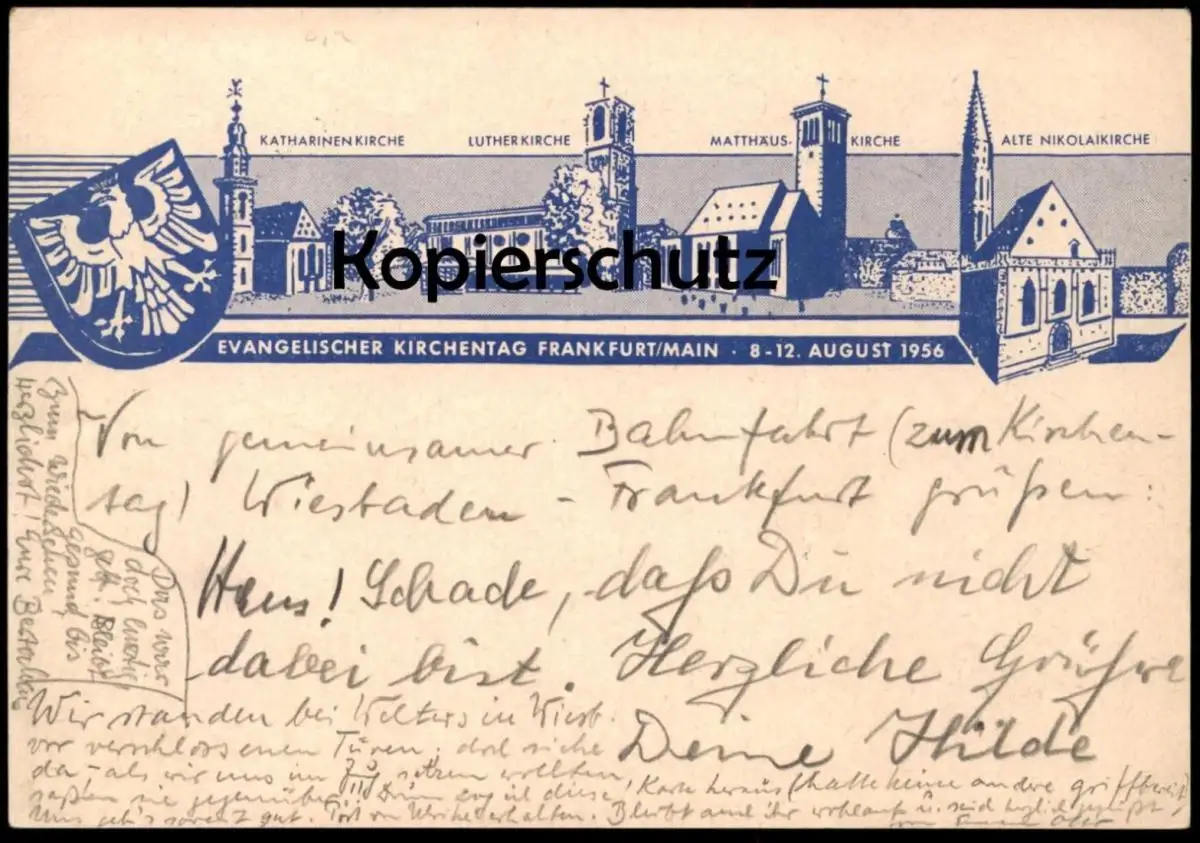 KATHARINENKIRCHE LUTHERKIRCHE MATTHÄUS- KIRCHE ALTE NIKOLAIKIRCHE
Kopierschutz
EVANGELISCHER KIRCHENTAG FRANKFURT/MAIN · 8-12. AUGUST 1956
Von gemeinsamer Bahnfahrt (zum Kirchen-
tag) Wiesbaden - Frankfurt grüßen:
Hans! Schade, daß Du nicht
dabei bist. Herzliche Grüße
Deine Hilde
Das war
doch lustig
gell. Bleibt
gesund bis
zum Wiedersehen!
Herzlichst! Eure
Wir standen bei Welters in Wiesb.
vor verschlossenen Türen; doch siehe
da, als wir uns im Zug setzen wollten,
saßen sie gegenüber! Drum zog ich diese Karte heraus (hatte keine andere griffbereit)
Uns geht's soweit gut. von erhalten. Bleibt und ihr wohlauf u. seid herzlich gegrüßt